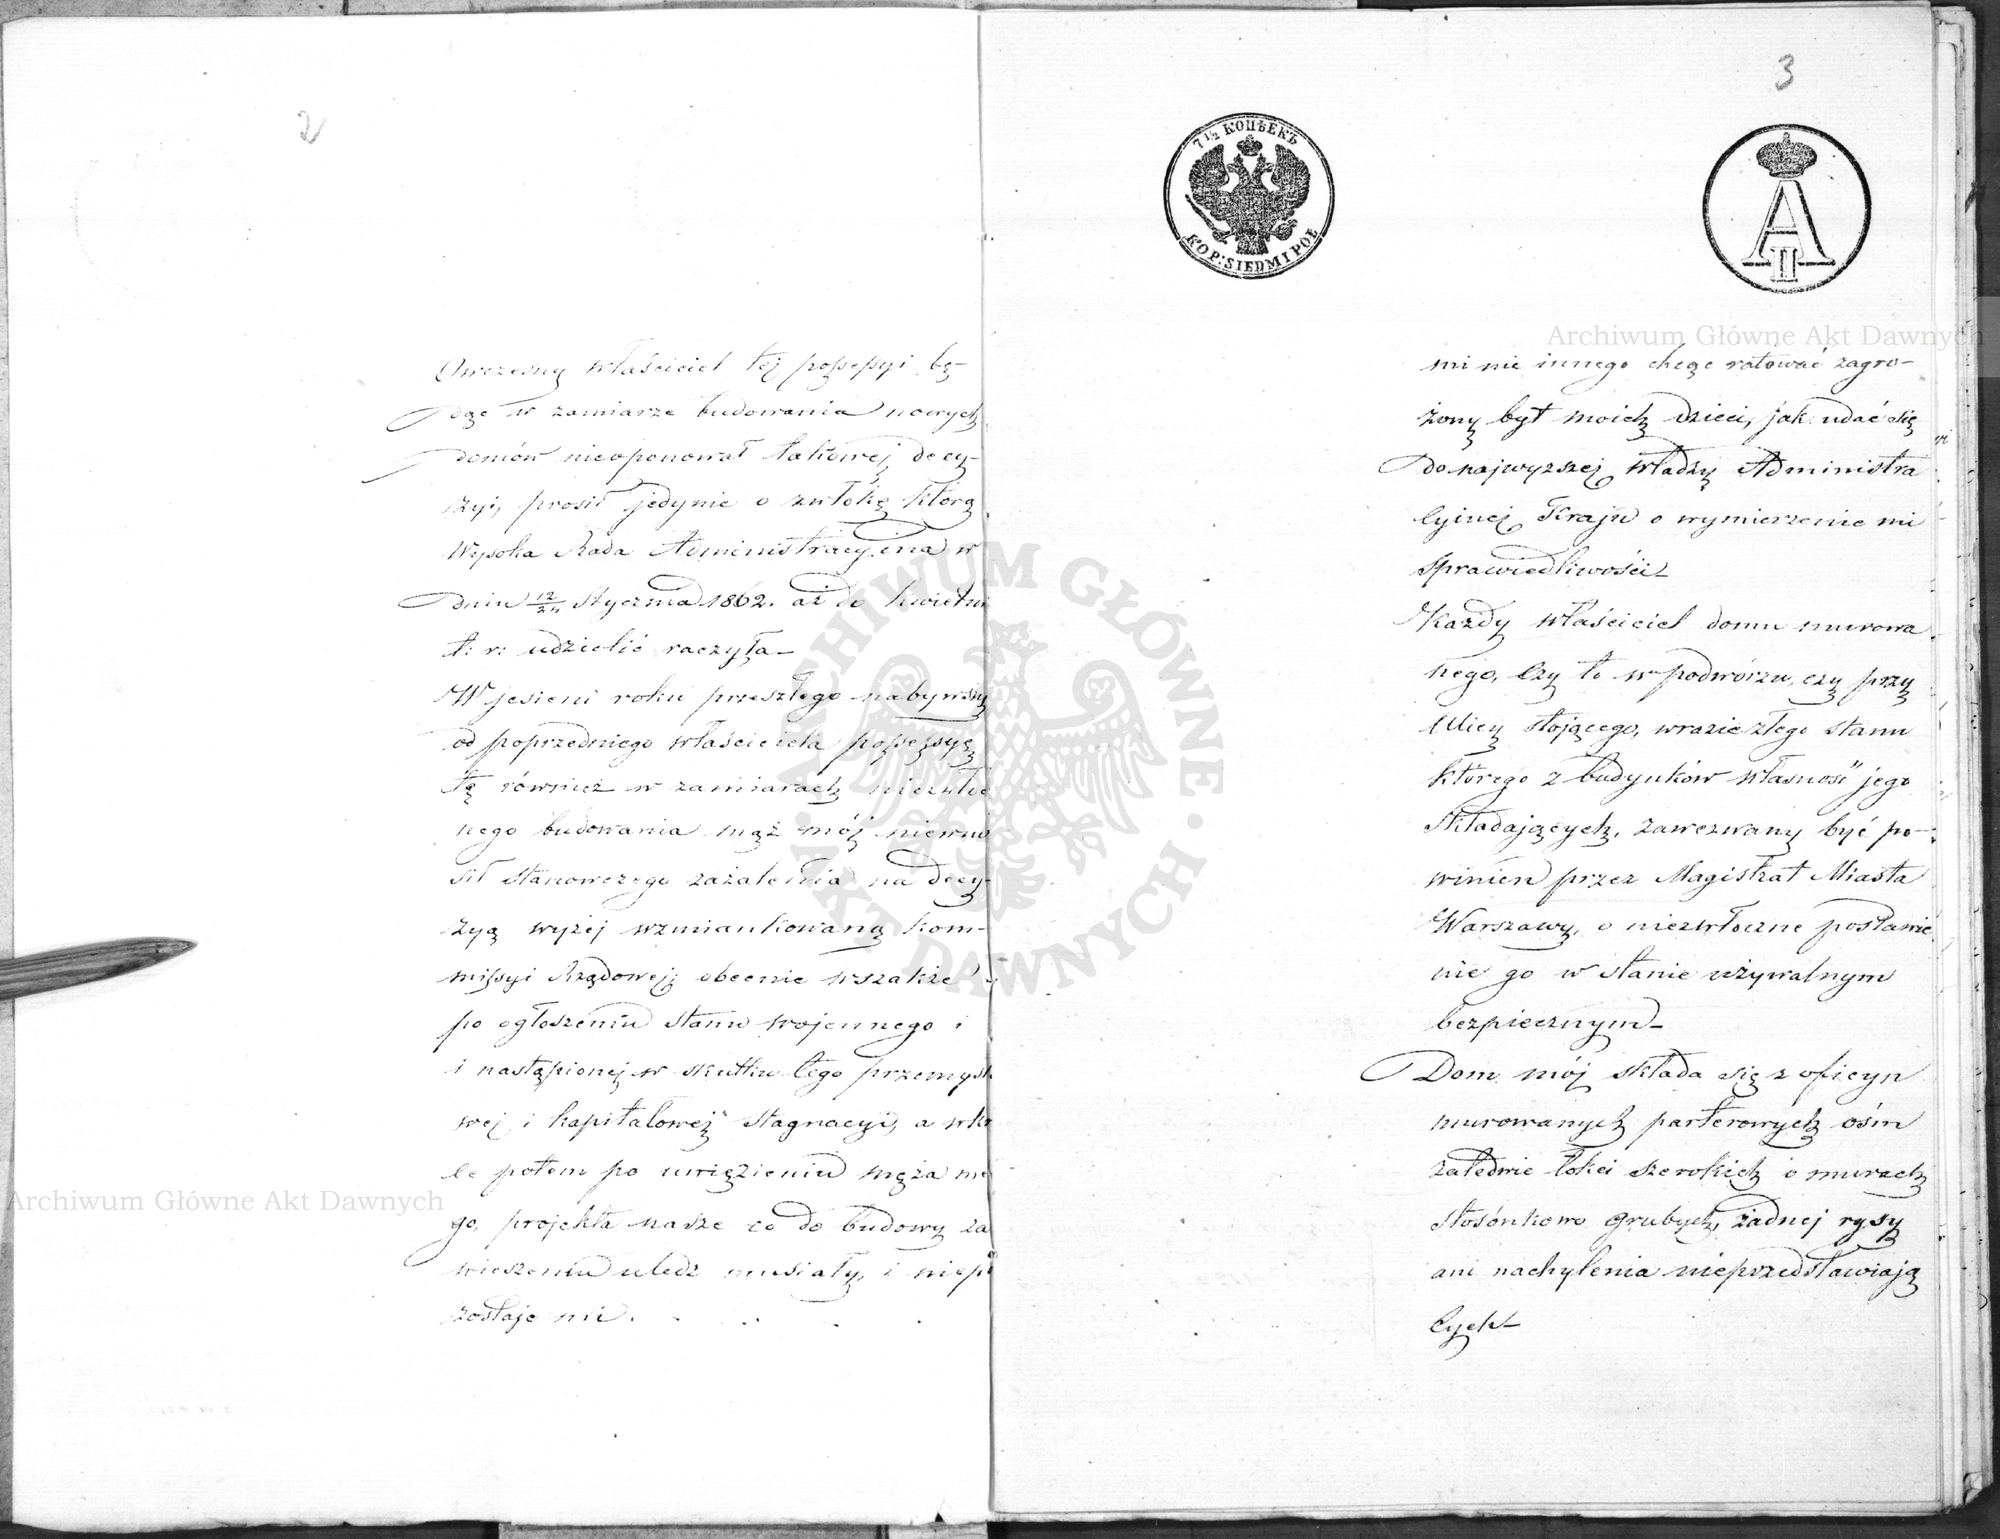 2
Ówczesny właściciel tej possessyi bę-
dąc w zamiarze budowania nowych
domów nieoponował takowej decy-
zyi, prosił jedynie o zwłokę którą
Wysoka Rada Administracyjna w
dniu 12/24 Stycznia 1862. aż do kwietni
t: r: udzielić raczyła_
W jesieni roku przeszłego nabywszy
od poprzedniego właściciela possessyą
tę również w zamiarach niezwłoc
nego budowania mąż mój niewno
sił stanowczego zażalenia na decy-
zyą wyżej wzmiankowaną Kom-
missyi Rządowej, obecnie wszakże
po ogłoszeniu stanu wojennego i
i nastąpionej w skutku tego przemysł
wej i kapitałowej stagnacyi, a wkr
ce potem po uwięzieniu męża me
go, projekta nasze co do budowy za
wieszeniu uledz musiały, i niepo
zostaje mi . . . . .
3
7 1/2 КОПѢЕКЪ
KOP: SIEDM I POŁ
A II
mi nic innego chcąc ratować zagro-
żony byt moich dzieci, jak udać się
do najwyższej władzy Administra
cyjnej Kraju o wymierzenie mi
sprawiedliwości_
Każdy właściciel domu murowa
nego, czy to w podwórzu, czy przy
Ulicy stojącego, wrazie złego stanu
którego z budynków własność jego
składających, zawezwany być po-
winien przez Magistrat Miasta
Warszawy, o niezwłoczne postawie
nie go w stanie używalnym
bezpiecznym_
Dom mój składa się z oficyn
murowanych parterowych ośm
zaledwie łokci szerokich o murach
stosónkowo grubych, żadnej rysy
ani nachylenia nieprzedstawiają
cych_
Archiwum Główne Akt Dawnych
Archiwum Główne Akt Dawnych
ARCHIWUM GŁÓWNE · AKT DAWNYCH ·